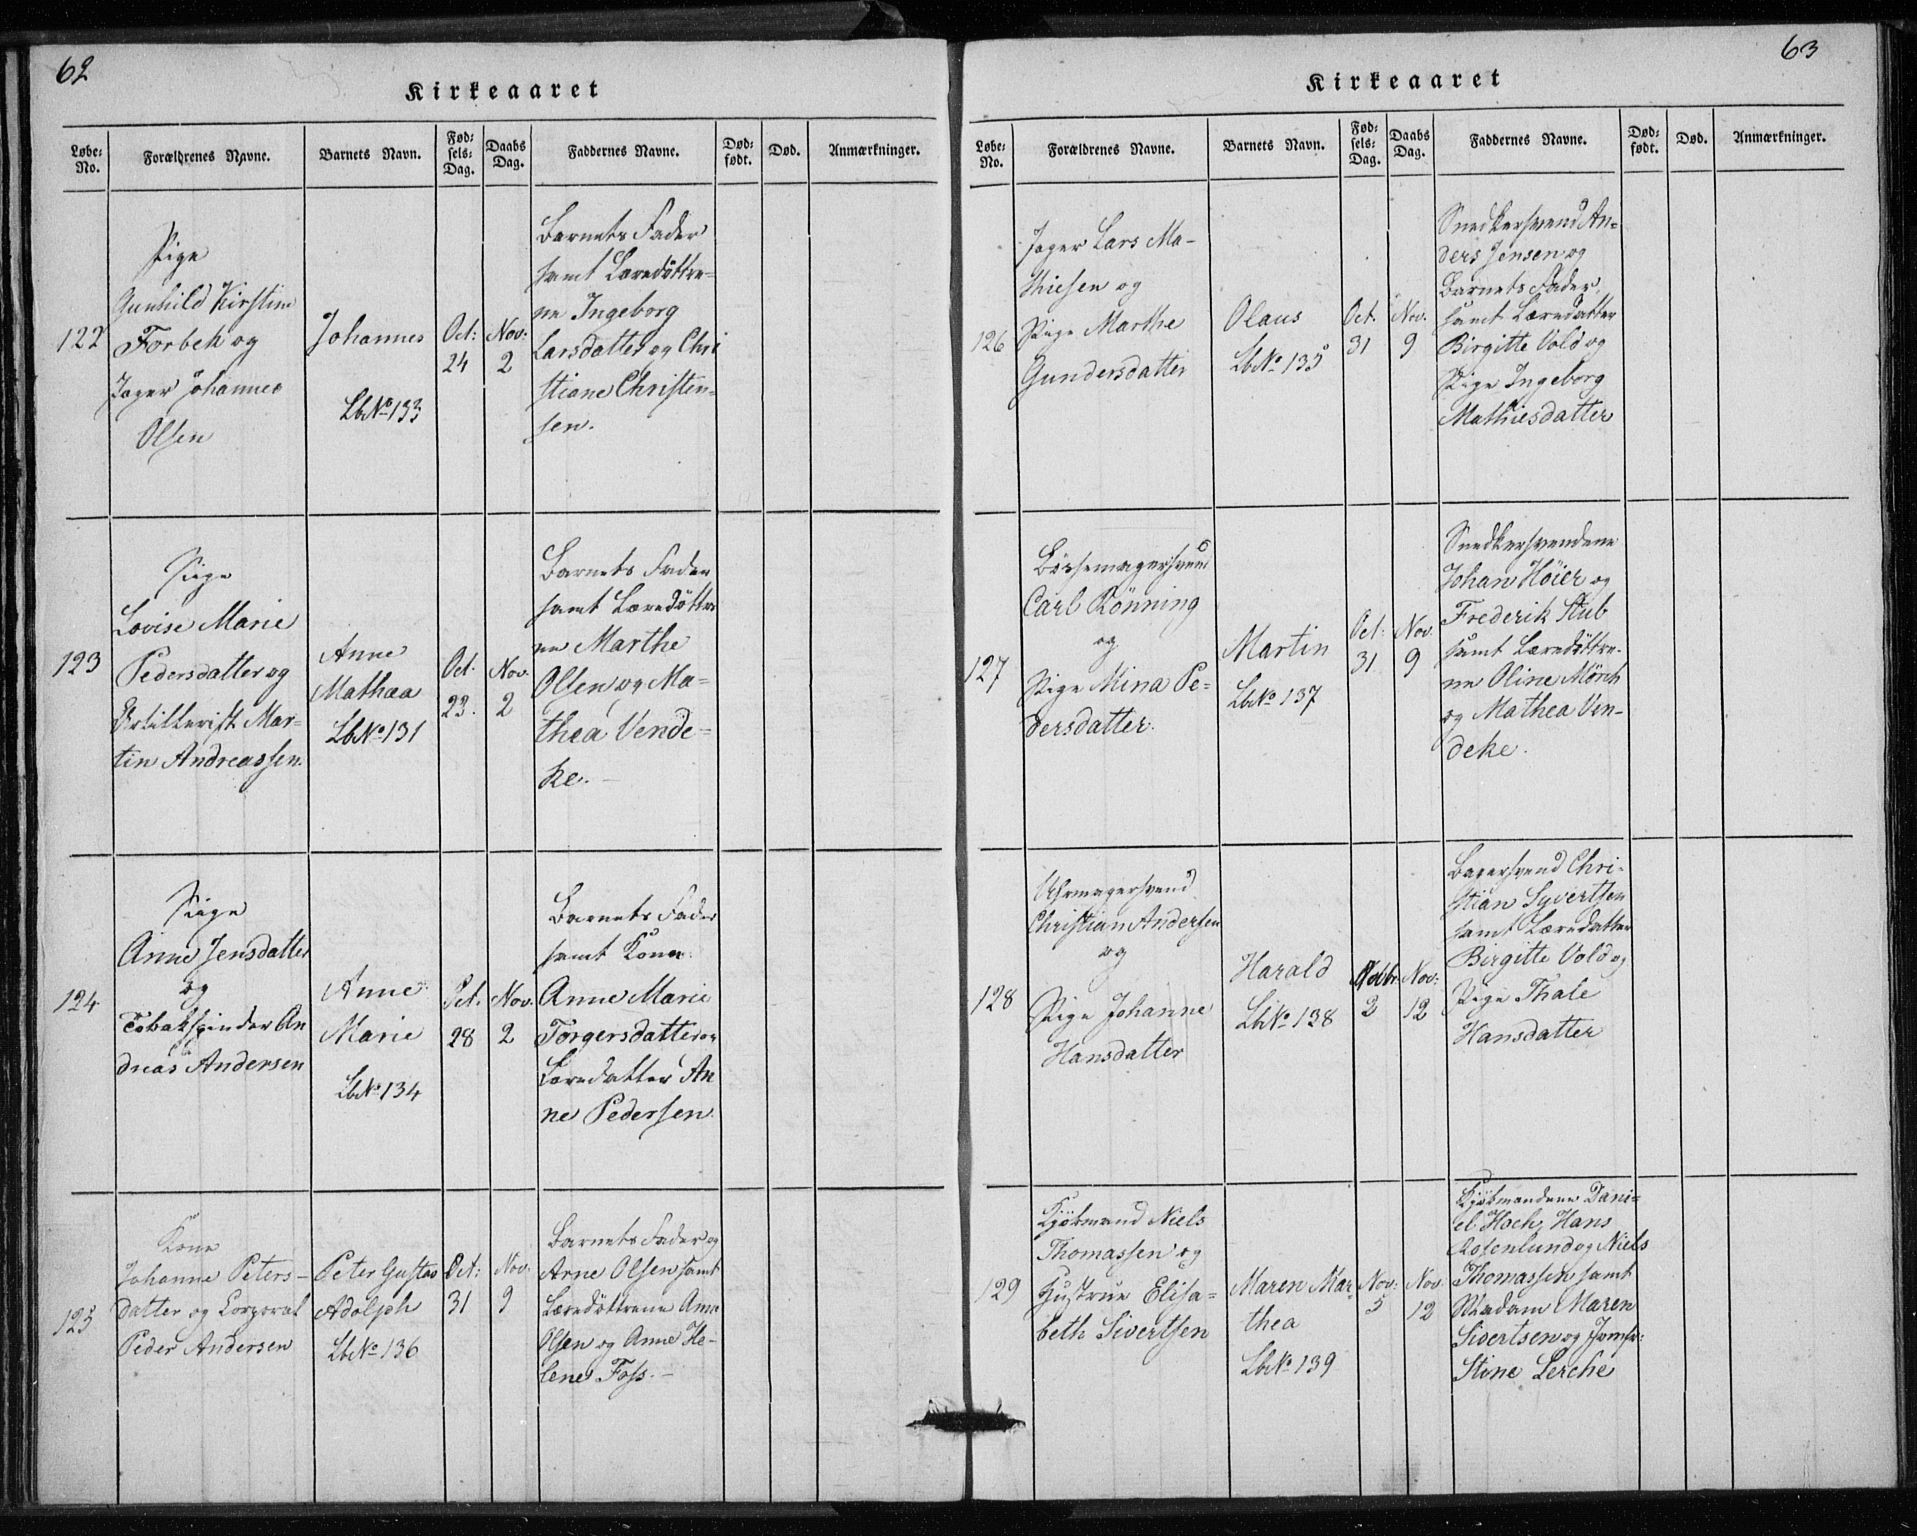 62
Kirkeaaret
Løbe-No.
Forældrenes Navne.
Barnets Navn.
Fød-sels-Dag.
Daabs Dag.
Faddernes Navne.
Død-født.
Død.
Anmærkninger.
122
Pige
Gunhild Kirstine
Forbek og
Jager Johannes
Olsen
Johannes
Lb.No 133
Oct:
24
Nov:
2
Barnets Fader
samt Læredöttre-
ne Ingeborg
Larsdatter og Chri
stiane Christen-
sen.
123
Pige
Lovise Marie
Pedersdatter og
Artillerist Mar-
tin Andreassen.
Anne
Mathea
Lb.No 131
Oct.
23.
Nov.
2
Barnets Fader
samt Læredöttre
ne Marthe
Olsen og Ma-
thea Vende-
ke.
124
Pige
Anne Jensdatter
og
Tobakspinder An
dreas Andersen
Anne
Marie
Lb.No 134
Oct.
28
Nov.
2
Barnets Fader
samt Kone
Anne Marie
Torgersdatter og
Læredatter An
ne Pedersen
125
Kone
Johanne Peters-
datter og Corporal
Peder Andersen
Peter Gustav
Adolph
Lb.No 136
Oct:
31
Nov:
9
Barnets Fader og
Arne Olsen samt
Læredöttrene Anne
Olsen og Anne He-
lene Foss.
63
Kirkeaaret
Løbe-No.
Forældrenes Navne.
Barnets Navn.
Fød-sels-Dag.
Daabs Dag.
Faddernes Navne.
Død-født.
Død.
Anmærkninger.
126
Jager Lars Ma-
thiesen og
Pige Marthe
Gundersdatter
Olaus
Lb.No 135
Oct.
31
Nov.
9
Snedkersvend An-
ders Jensen og
Barnets Fader,
samt Læredatter
Birgitte Vold og
Pige Ingeborg
Mathiesdatter
127
Börsemagersvend
Carl Rönning
og
Pige Mina Pe-
dersdatter.
Martin
Lb.No 137
Oct:
31
Nov.
9
Snedkersvendene
Johan Höier og
Frederik Stub
samt Læredöttre-
ne Oline Mörch
og Mathea Ven-
deke.
128
Uhrmagersvend
Christian Andersen
og
Pige Johanne
Hansdatter
Harald
Lb.No 138
Novbr.
2
Nov:
12
Bagersvend Chri-
stian Syvertsen
samt Læredatter
Birgitte Vold og
Pige Thale
Hansdatter
129
Kjöbmand Niels
Thomassen og
Hustrue Elisa-
beth Sivertsen
Maren Mar-
thea
Lb.No 139
Nov:
5
Nov
12
Kjöbmandene Dani-
el Hoch, Hans
Rosenlund og Niels
Thomassen samt
Madam Maren
Sivertsen og Jomfr:
Stine Lerche